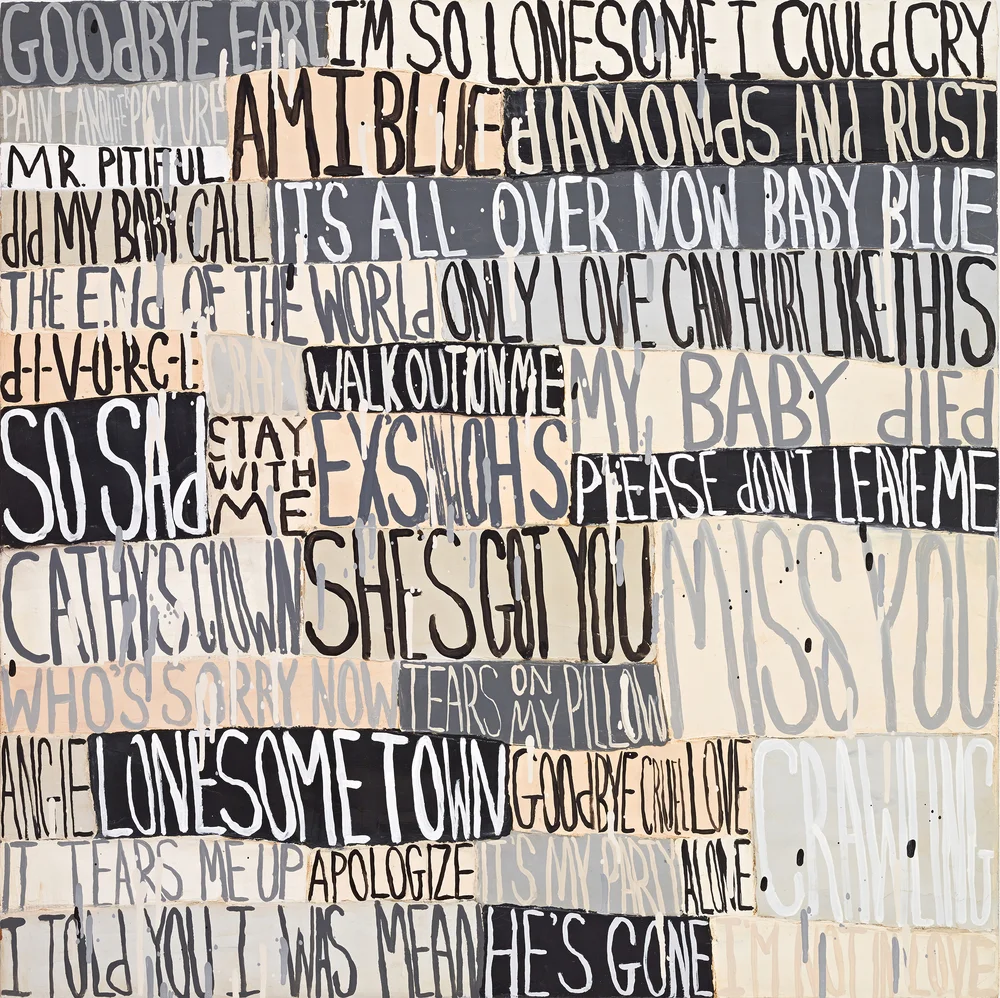 GOODBYE EARL
I'M SO LONESOME I COULD CRY
PAINT AND THE PICTURE
AM I BLUE
DIAMONDS AND RUST
MR. PITIFUL
DID MY BABY CALL
IT'S ALL OVER NOW BABY BLUE
THE END OF THE WORLD
ONLY LOVE CAN HURT LIKE THIS
D-I-V-O-R-C-E
CRAZY
WALK OUT ON ME
MY BABY DIED
SO SAD
STAY
WITH
ME
EX'S N OH S
PLEASE DON'T LEAVE ME
CATHY'S CLOWN
SHE'S GOT YOU
MISS YOU
WHO'S SORRY NOW
TEARS ON MY PILLOW
ANGIE
LONESOME TOWN
GOODBYE CRUEL LOVE
CRAWLING
IT TEARS ME UP
APOLOGIZE
IT'S MY PARTY
ALONE
I TOLD YOU I WAS MEAN
HE'S GONE
I'M NOT IN LOVE